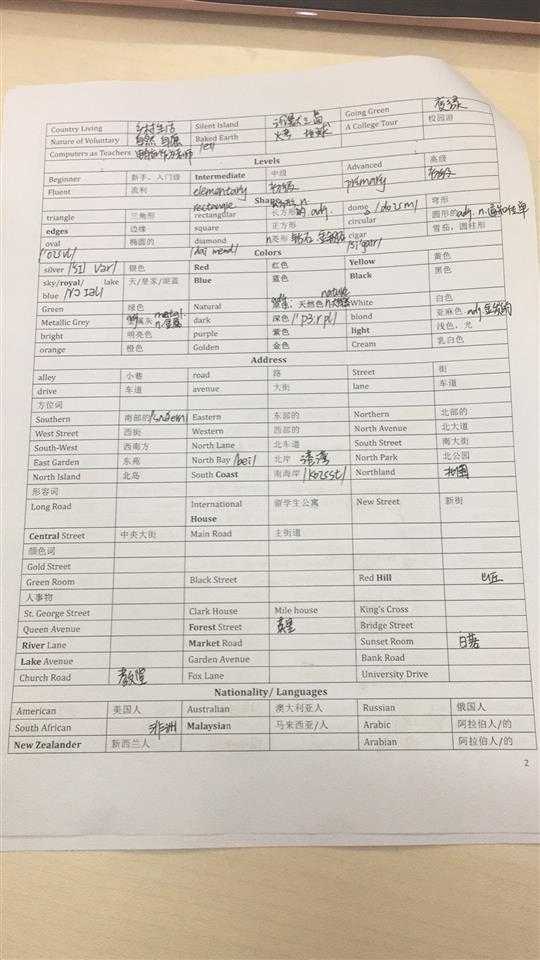 Country Living 乡村生活 Silent Island 沉默之岛 Going Green 变绿
Nature of Voluntary 自然 自愿 Baked Earth 火烤 地球 A College Tour 校园游
Computers as Teachers 电脑作为老师
Levels
Beginner 新手、入门级 Intermediate 中级 Advanced 高级
Fluent 流利 elementary 初级 primary 初级
rectangle n
Shape
triangle 三角形 rectangular 长方形的 adj. dome 穹形
edges 边缘 square 正方形 circular 圆形的 adj.
oval 椭圆的 diamond 菱形 钻石 cigar 雪茄,圆柱形
Colors
silver 银色 Red 红色 Yellow 黄色
sky/royal/ lake blue 天/皇家/湖蓝 Blue 蓝色 Black 黑色
Green 绿色 Natural 天然色 nature White 白色
Metallic Grey metal dark 深色 blond 亚麻色 adj
bright 明亮色 purple 紫色 light 浅色,光
orange 橙色 Golden 金色 Cream 乳白色
Address
alley 小巷 road 路 Street 街
drive 车道 avenue 大街 lane 车道
方位词
Southern 南部的 Eastern 东部的 Northern 北部的
West Street 西街 Western 西部的 North Avenue 北大道
South-West 西南方 North Lane 北车道 South Street 南大街
East Garden 东苑 North Bay /bei/ 北岸 North Park 北公园
North Island 北岛 South Coast 南海岸 Northland
形容词
Long Road International House 留学生公寓 New Street 新街
Central Street 中央大街 Main Road 主街道
颜色词
Gold Street
Green Room Black Street Red Hill
人事物
St. George Street Clark House Mile house King's Cross
Queen Avenue Forest Street Bridge Street
River Lane Market Road Sunset Room 日落
Lake Avenue Garden Avenue Bank Road
Church Road 教堂 Fox Lane University Drive
Nationality/ Languages
American 美国人 Australian 澳大利亚人 Russian 俄国人
South African 非洲 Malaysian 马来西亚/人 Arabic 阿拉伯人/的
New Zealander 新西兰人 Arabian 阿拉伯人/的
2